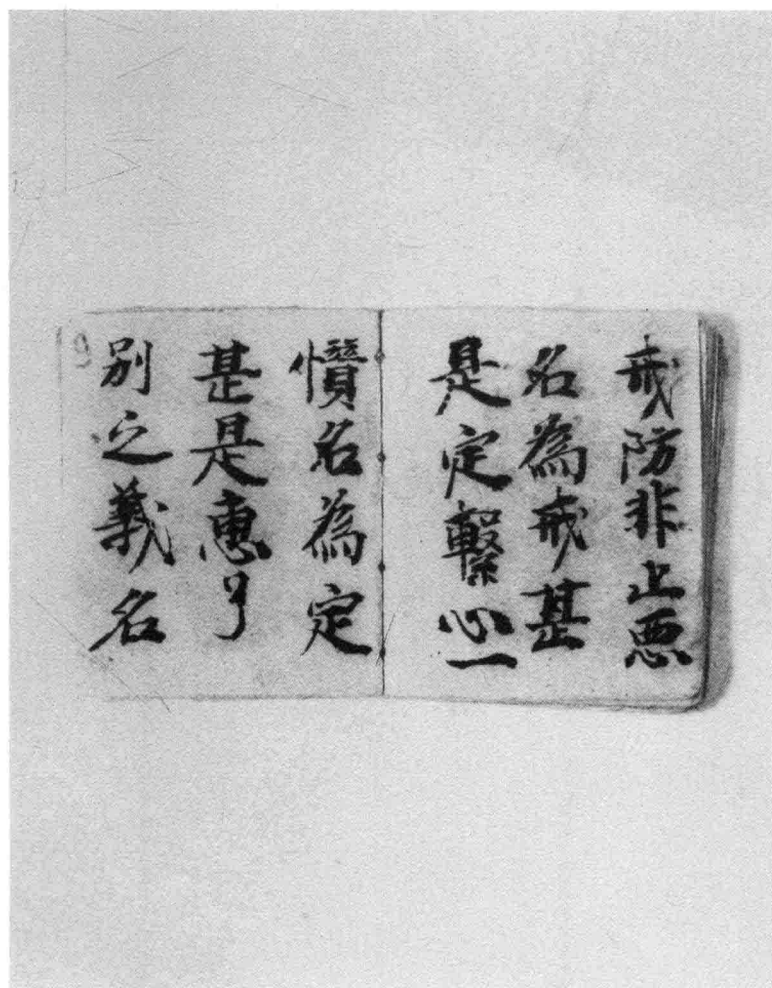 戒防非止悪
名為戒甚
是定繫心一
名為定
甚是惠了
別之義名